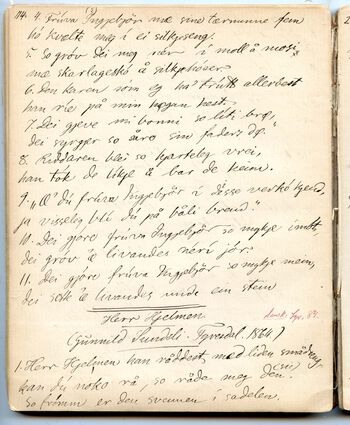 114. 4. Frúva Ingjebjör me sine tærnunne fem
hó kvelte meg i ei silkjeseng.
5. So gróv dei meg nér i mollå mosi
me skarlageskó å silkjehóser.
6. Den karen som eg ha' trútt allerbest
han rie på min høgan hest.
7. Dei gjeve mi bonni so líti brø,
dei syrgjer so åro sin faders dø.
8. Riddaren blei so hjarteleg vrei,
han tók de líkje å bar de heim.
9. "Å dú frúva Ingjebjör i desse verkó kjend
ja visseleg blí dú på båli brend."
10. Dei gjore frúva Ingjebjör so mykje imótt,
dei gróv 'e livandes néri jór.
11. Dei gjore frúva Ingjebjör so mykje mein,
dei sette 'e livandes unde ein stein
Herr Hjelmen
(Gunnuld Sundsli. Fyresdal. 1864)
1. Herr Hjelmen han råddest med liden smådreng
kan dú noko rå, so råde meg den.
So fróum er den svennen i sadelen.